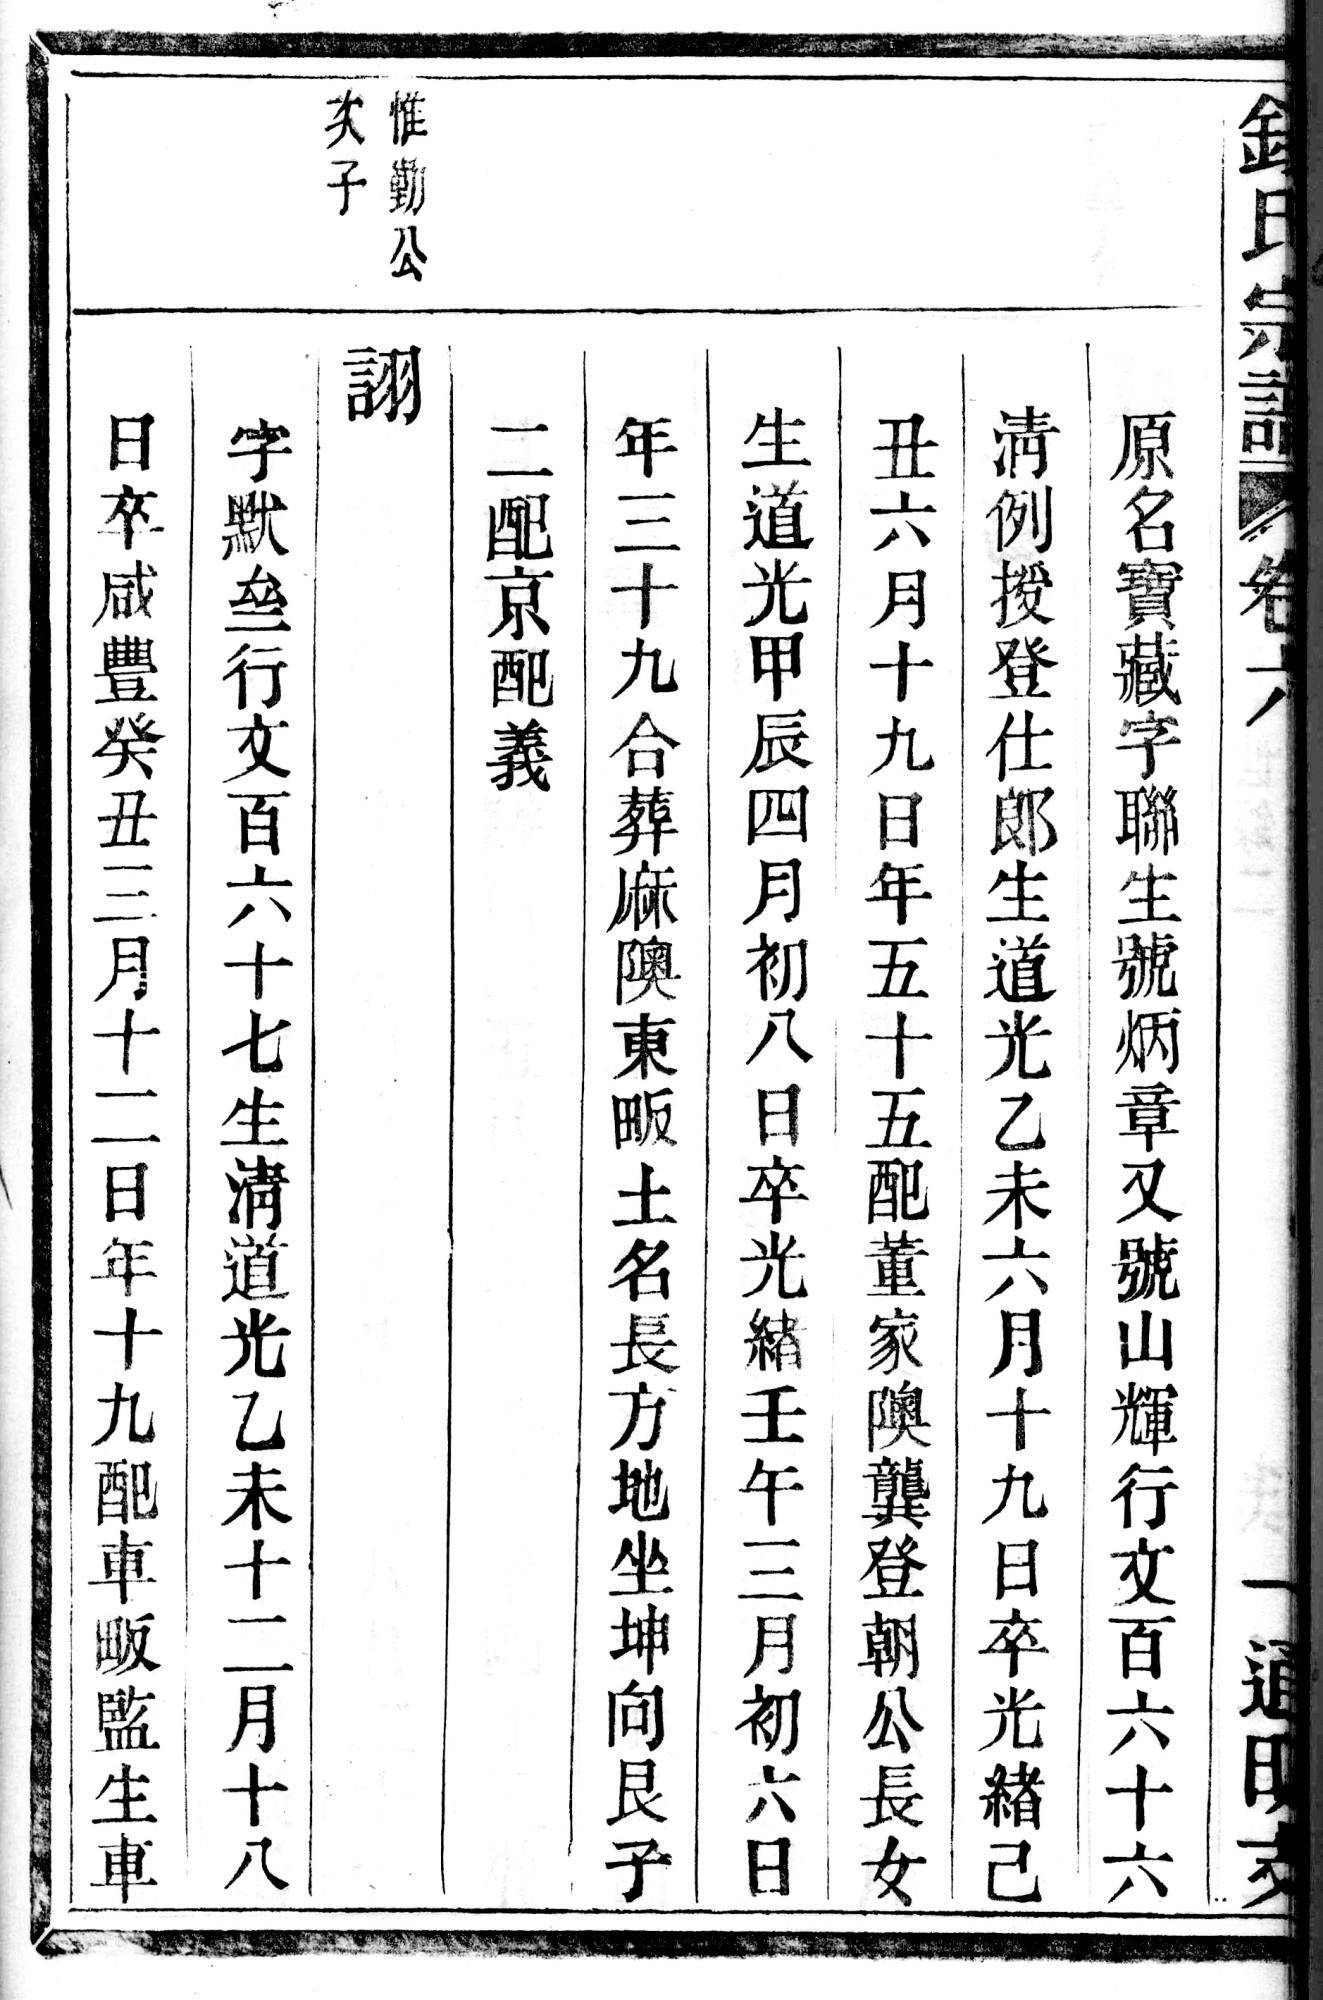 氏宗譜 卷六 一 通明支
原名寶藏字聯生號炳章又號山輝行文百六十六
清例授登仕郎生道光乙未六月十九日卒光緒己
丑六月十九日年五十五配董家隩龔登朝公長女
生道光甲辰四月初八日卒光緒壬午三月初六日
年三十九合葬麻隩東畈土名長方地坐坤向艮子
二配京配義
惟勤公
次子
詡
字默行文百六十七生清道光乙未十二月十八
日卒咸豐癸丑三月十二日年十九配車畈監生車